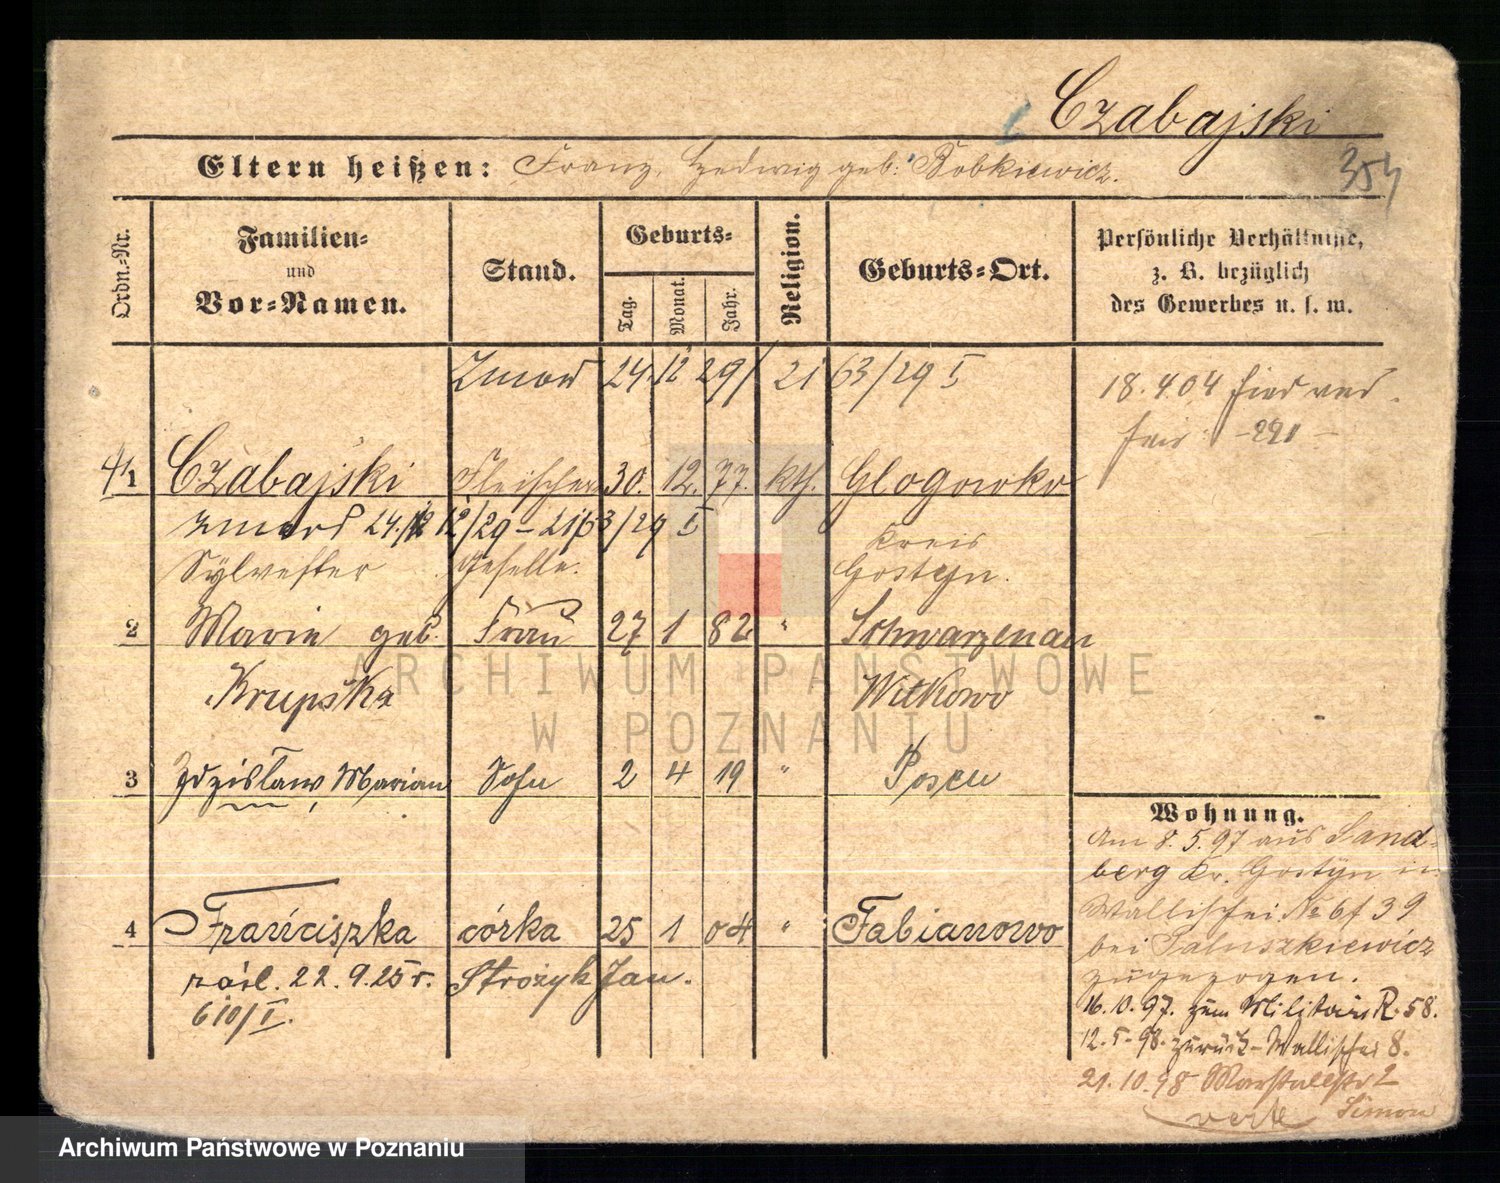 Czabajski
354
Eltern heißen: Franz, Hedwig geb: Bobkiewicz.
Ordn.-Nr.
Familien- und Vor-Namen.
Stand.
Geburts-
Tag. Monat. Jahr.
Religion.
Geburts-Ort.
Persönliche Verhältnisse,
z. B. bezüglich
des Gewerbes u. s. w.
24. 12 29/ 21 63/29 I
18.4.04
1 Czabajski Fleischer 30. 12. 77. kth. Glogowko
24./12 12/29 - 21/63/29 I
Kreis
Sylvester Geselle. Gostyn.
2 Marie geb. Frau 27 1 82 " Schwarzenau
Krupska Witkowo
3 Zdzisław, Marian Sohn 2 4 19 " Posen
4 Franciszka córka 25 1 04 " Fabianowo
22. 9. 25 r. Strożyk Jan.
610/I.
Wohnung.
Am 8. 5. 97 aus Sand-
berg Kr. Gostyn in
Wallischei No 6f 39
bei Paluszkiewicz
zugezogen.
16. 10. 97. zum Militair R. 58.
12. 5. 98. zurück - Wallischei 8.
21. 10. 98 Marstallstr 2
verte Simon
ARCHIWUM PAŃSTWOWE
W POZNANIU
Archiwum Państwowe w Poznaniu